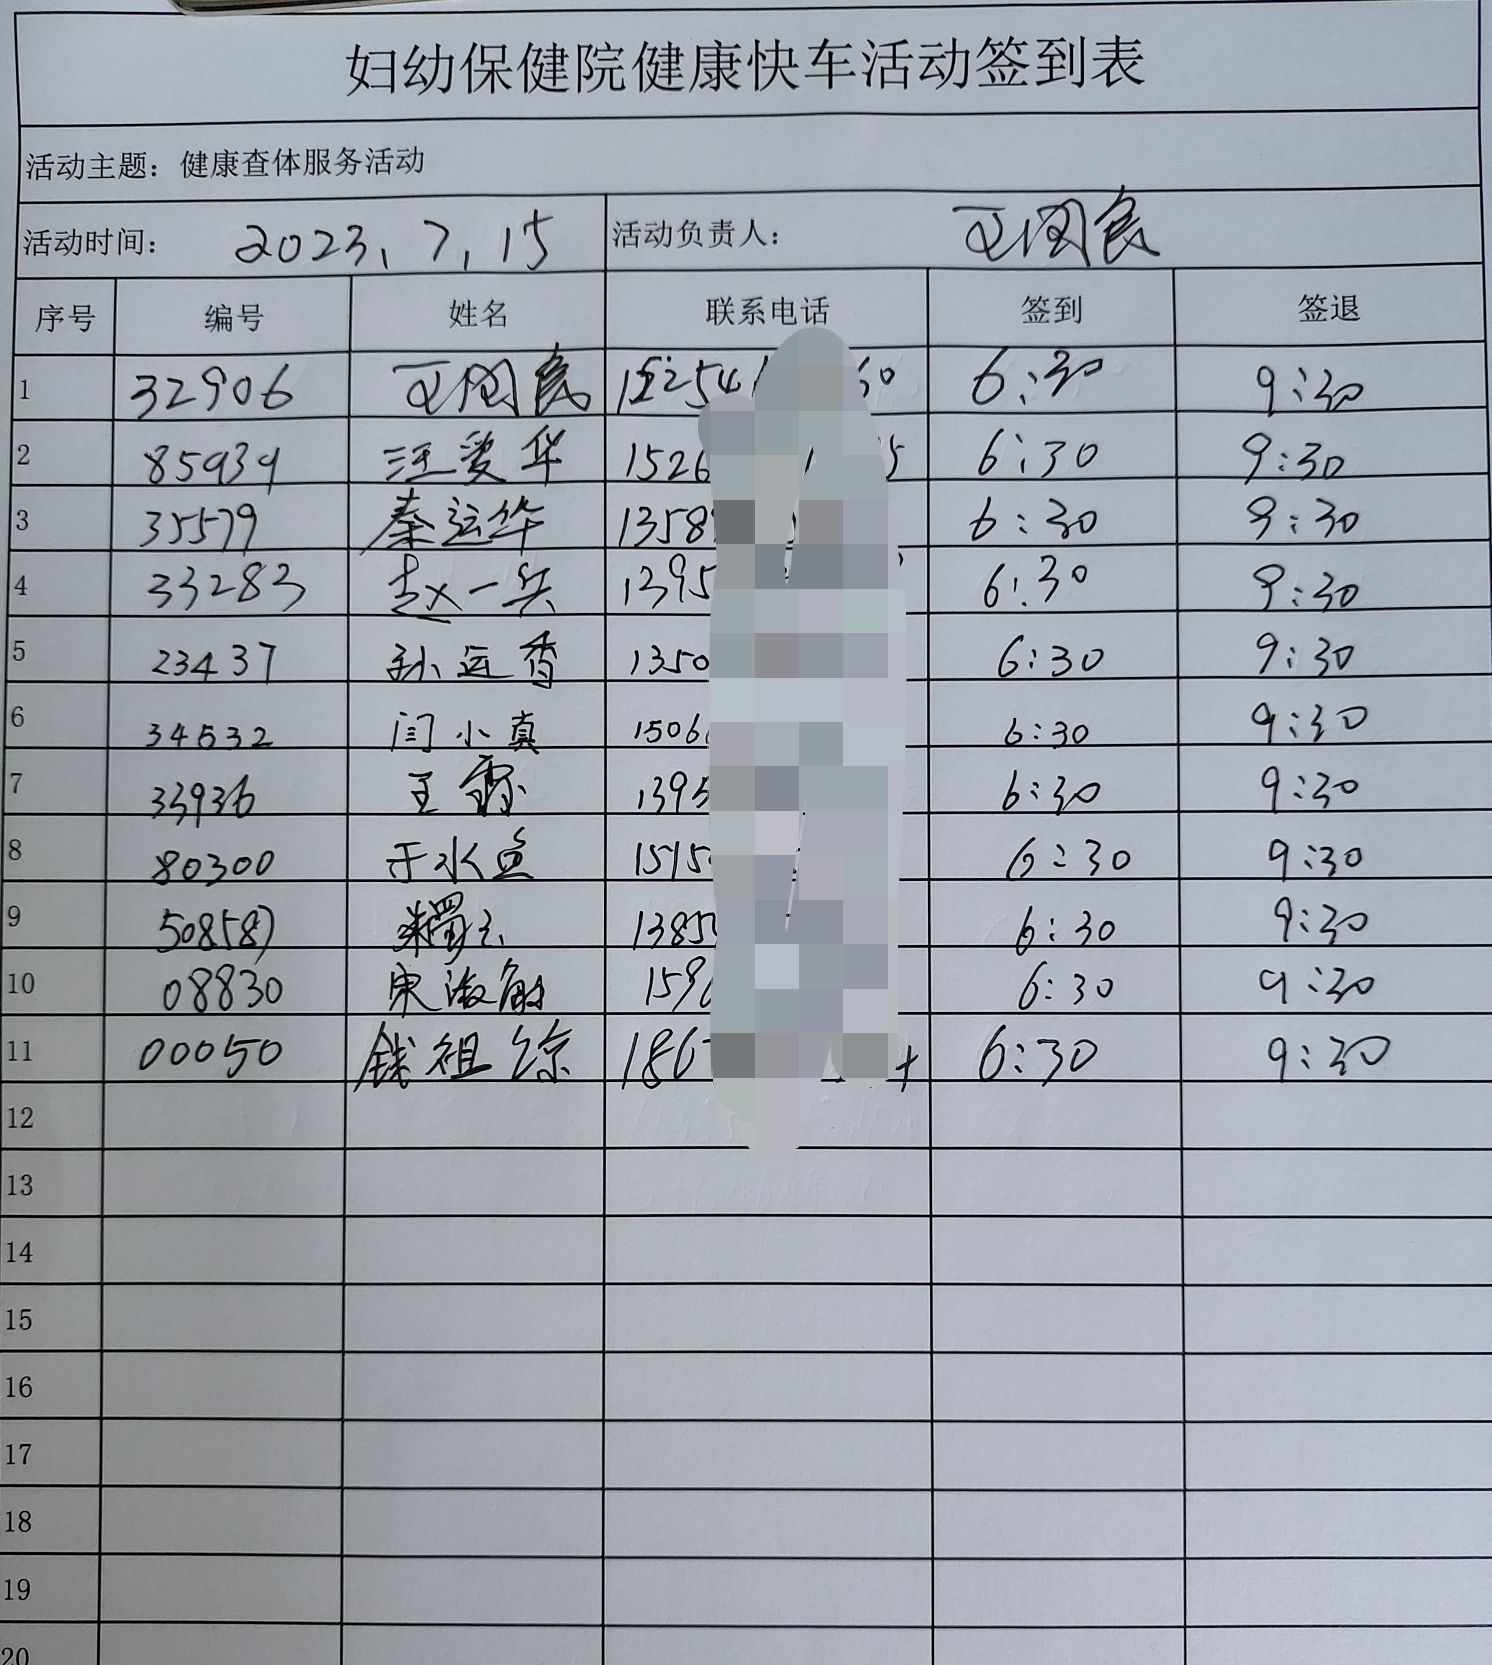 妇幼保健院健康快车活动签到表
活动主题：健康查体服务活动
活动时间： 2023、7、15 活动负责人： 王国民
序号 编号 姓名 联系电话 签到 签退
1 32906 王国民 6:30 9:30
2 85939 汪爱华 1526 6:30 9:30
3 35579 秦运华 1358 6:30 9:30
4 33283 赵一兵 1395 6:30 9:30
5 23437 孙运香 1350 6:30 9:30
6 34532 闫小真 1506 6:30 9:30
7 33936 王 6:30 9:30
8 80300 于水鱼 1515 6:30 9:30
9 1385 6:30 9:30
10 08830 159 6:30 9:30
11 00050 钱祖 186 6:30 9:30
12
13
14
15
16
17
18
19
20